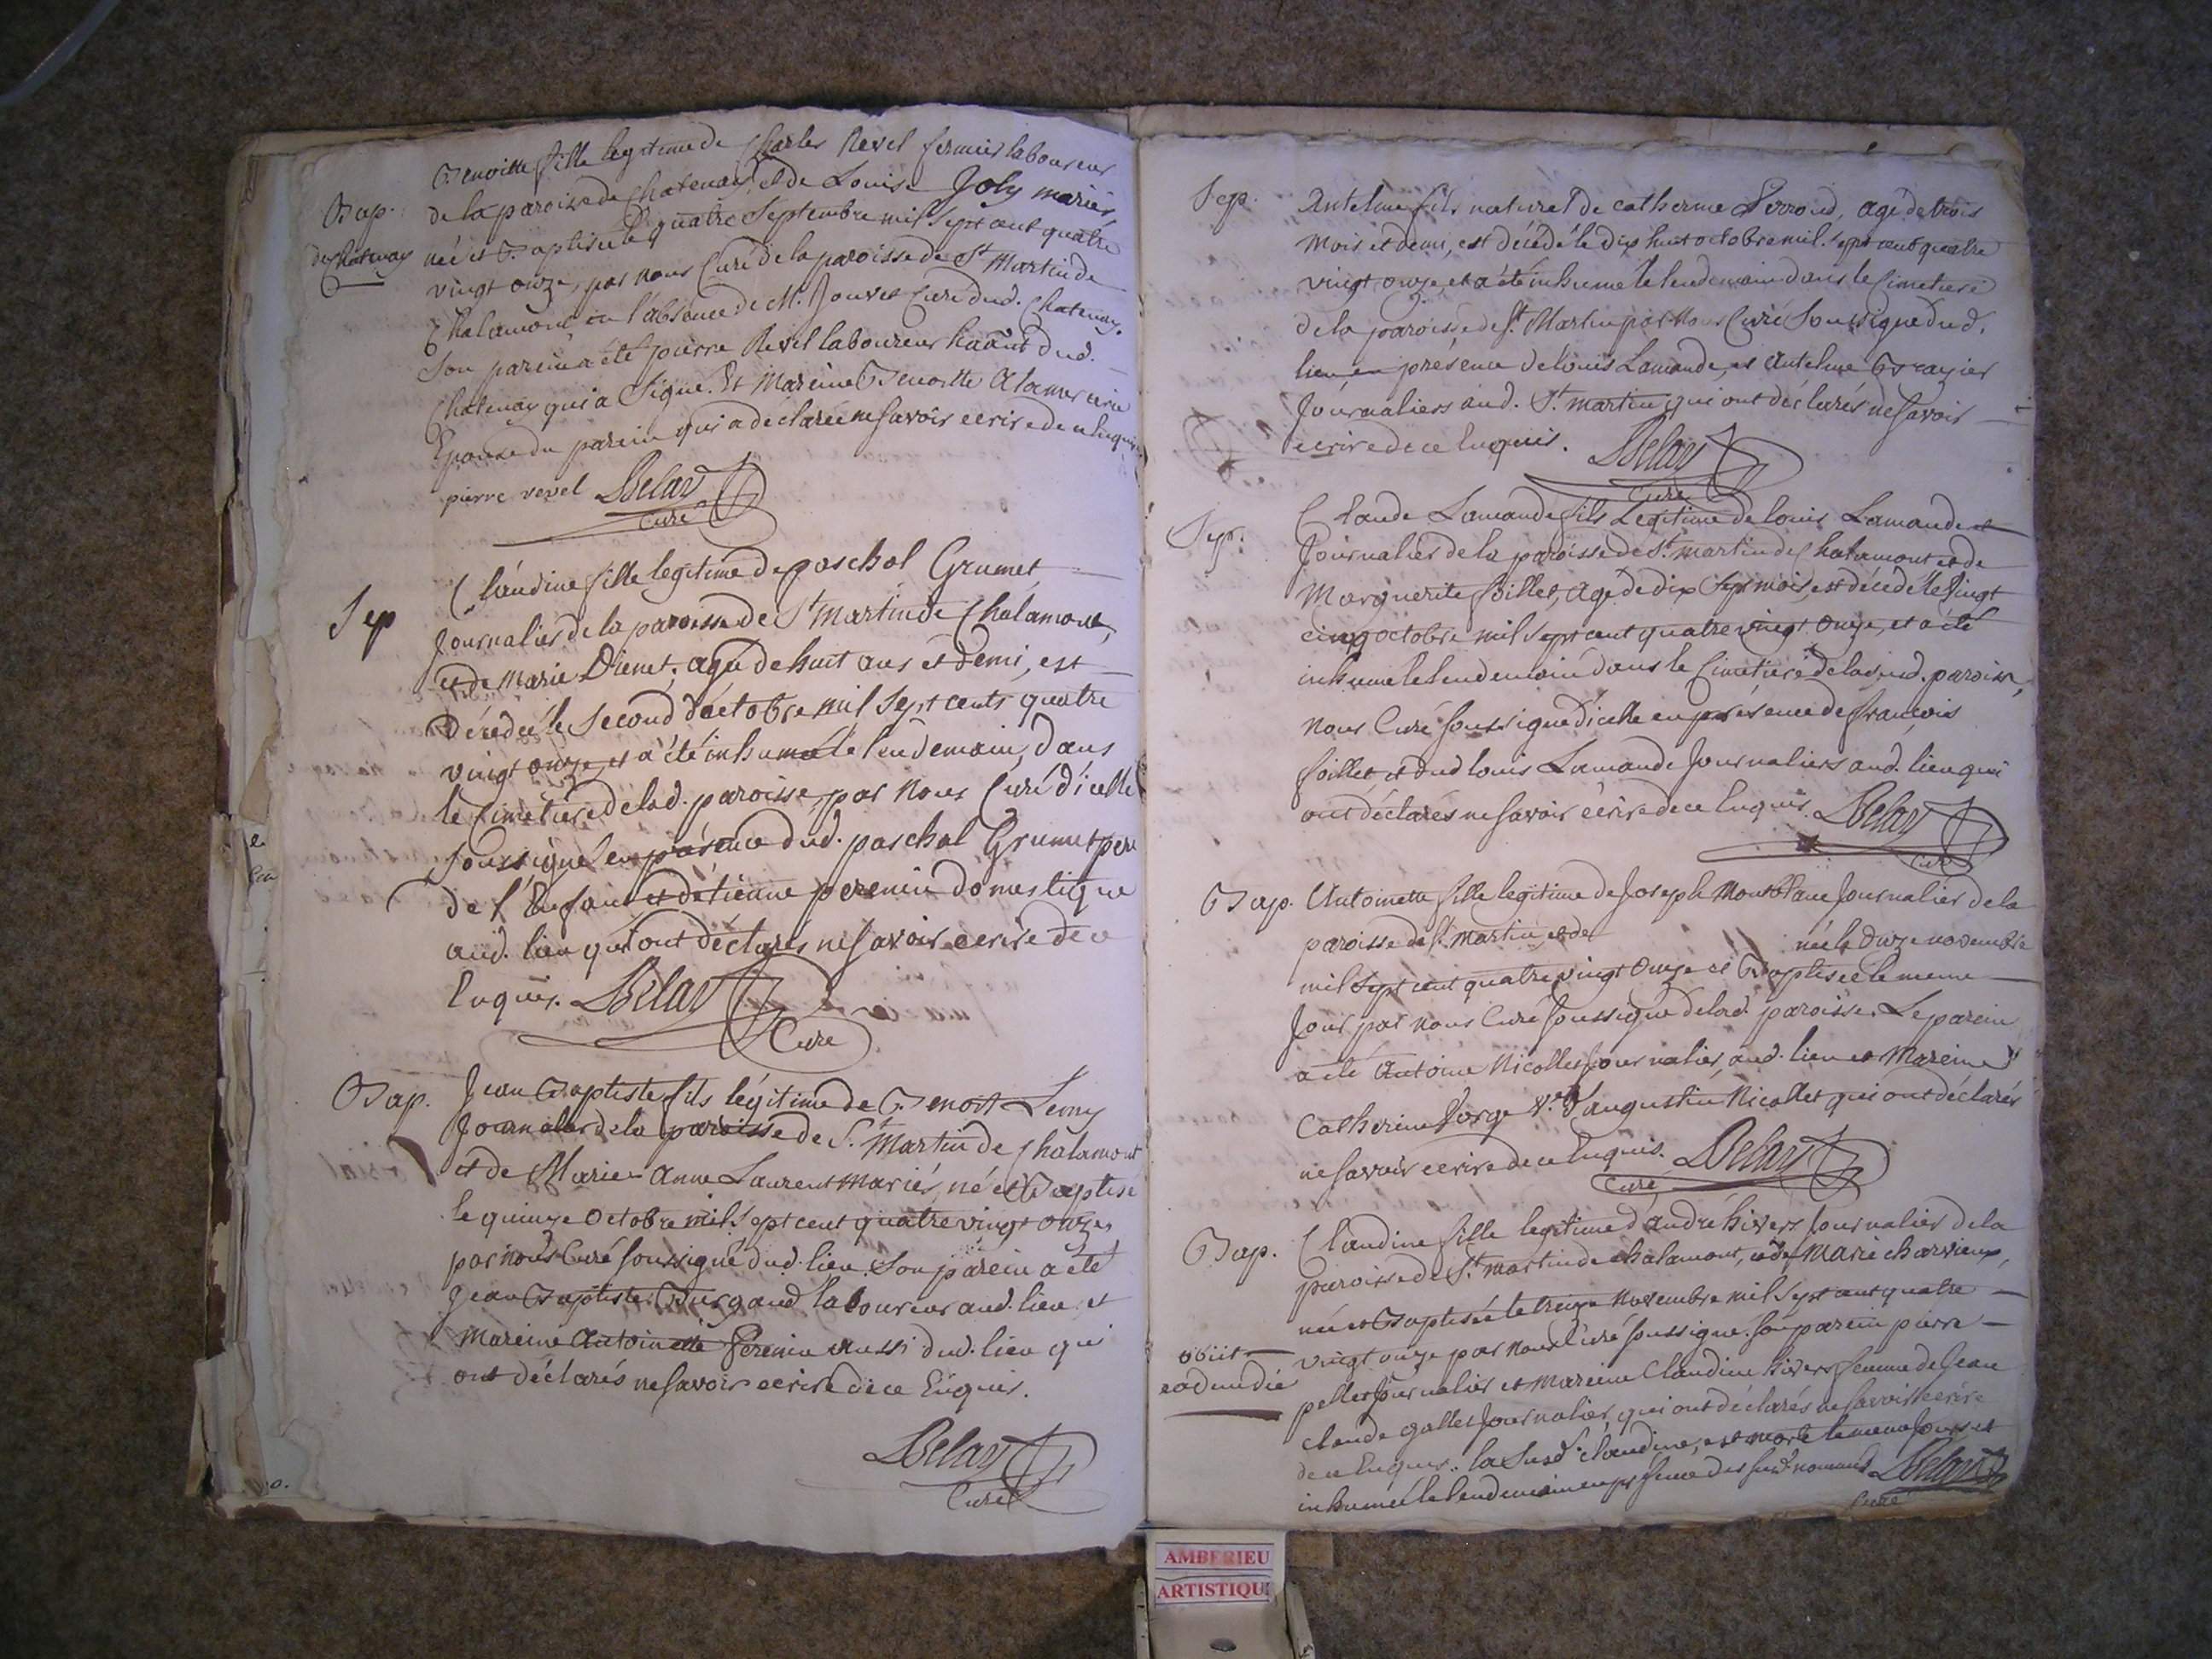 Benoitte fille legitime de Charles Revel fermier laboureur
Bap. de la paroisse de Chatenay, et de Louise Joly mariés,
de Chatenay née et Baptisée le quatre Septembre mil sept cent quatre
vingt onze, par nous Curé de la paroisse de St Martin de
Chalamont en l'absence de Mr. Jouvet Curé dud. Chatenay.
Son parein a été pierre Revel laboureur dud.
Chatenay qui a Signé. Et Mareine Benoitte
Epouse du parein qui a declarée ne savoir ecrire de ce Enquise
pierre revel Belay
Curé
Claudine fille legitime de paschal Grumet
Sep journalier de la paroisse de St Martin de Chalamont,
et de Marie Dienet, agée de huit ans et demi, est
décédée le Second d'octobre mil sept cents quatre
vingt onze, et a été inhumée le lendemain, dans
le Cimetiere de lad. paroisse, par nous Curé d'icelle
soussigné en présence dud. paschal Grumet pere
de l'Enfant et d'étienne perenin domestique
aud. lieu qui ont déclarés ne savoir ecrire de ce
Enquis. Belay
Curé
Bap. Jean Baptiste fils légitime de Benoit Semy
Journalier de la paroisse de St. Martin de Chalamont
et de Marie Anne Laurent mariés, né et Baptisé
le quinze Octobre mil sept cent quatre vingt onze,
par nous Curé soussigné dud. lieu. Son parein a été
Jean Baptiste Burgaud laboureur aud. lieu, et
Mareine Antoinette Perenin aussi dud. lieu qui
ont déclarés ne savoir ecrire de ce Enquis.
Belay
Curé
Sep. Antelme fils naturel de catherine Perroud, agé de trois
mois et demi, est décédé le dix huit octobre mil sept cent quatre
vingt onze, et a été inhumé le lendemain dans le Cimetiere
de la paroisse de St. Martin par nous Curé Soussigné dud.
lieu en présence de louis Lamande, et Antelme Brazier
Journaliers aud. St. martin qui ont déclarés ne savoir
ecrire de ce Enquis. Belay
Curé
Claude Lamande fils Légitime de louis Lamande
Sep. Journalier de la paroisse de St. martin de Chalamont et de
Marguerite foillet, agé de dix sept mois, est décédé le Vingt
cinq octobre mil sept cent quatre vingt onze, et a été
inhumé le lendemain dans le Cimetiere de lad. paroisse,
nous Curé soussigné d'icelle en présence de françois
foillet, et dud louis Lamande Journaliers aud. lieu qui
ont déclarés ne savoir écrire de ce Enquis. Belay
Curé
Bap. Antoinette fille legitime de Joseph Montblanc Journalier de la
paroisse de St martin, et de née le onze novembre
mil sept cent quatre vingt onze et Baptisée le meme
Jour par nous Curé soussigné de lad. paroisse. Le parein
a été Antoine Nicollet journalier, aud. lieu et Mareine
Catherine d'augustin Nicollet qui ont déclarés
ne savoir ecrire de ce Enquis. Belay
Curé
Bap. Claudine fille legitime d'andré hivers Journalier de la
paroisse de St. martin de chalamont, et de Marie charvieux,
née et Baptisée le treize Novembre mil sept cent quatre
obiit vingt onze par nous Curé soussigné. Son parein pierre
eadem die pellet Journalier et Mareine Claudine hivers femme de Jean
claude gallet Journalier, qui ont déclarés ne savoir ecrire
de ce Enquis. la susd. claudine, est morte le meme Jour et
inhumée le lendemain en présence des susd. nommés Belay
Curé
AMBERIEU
ARTISTIQUE